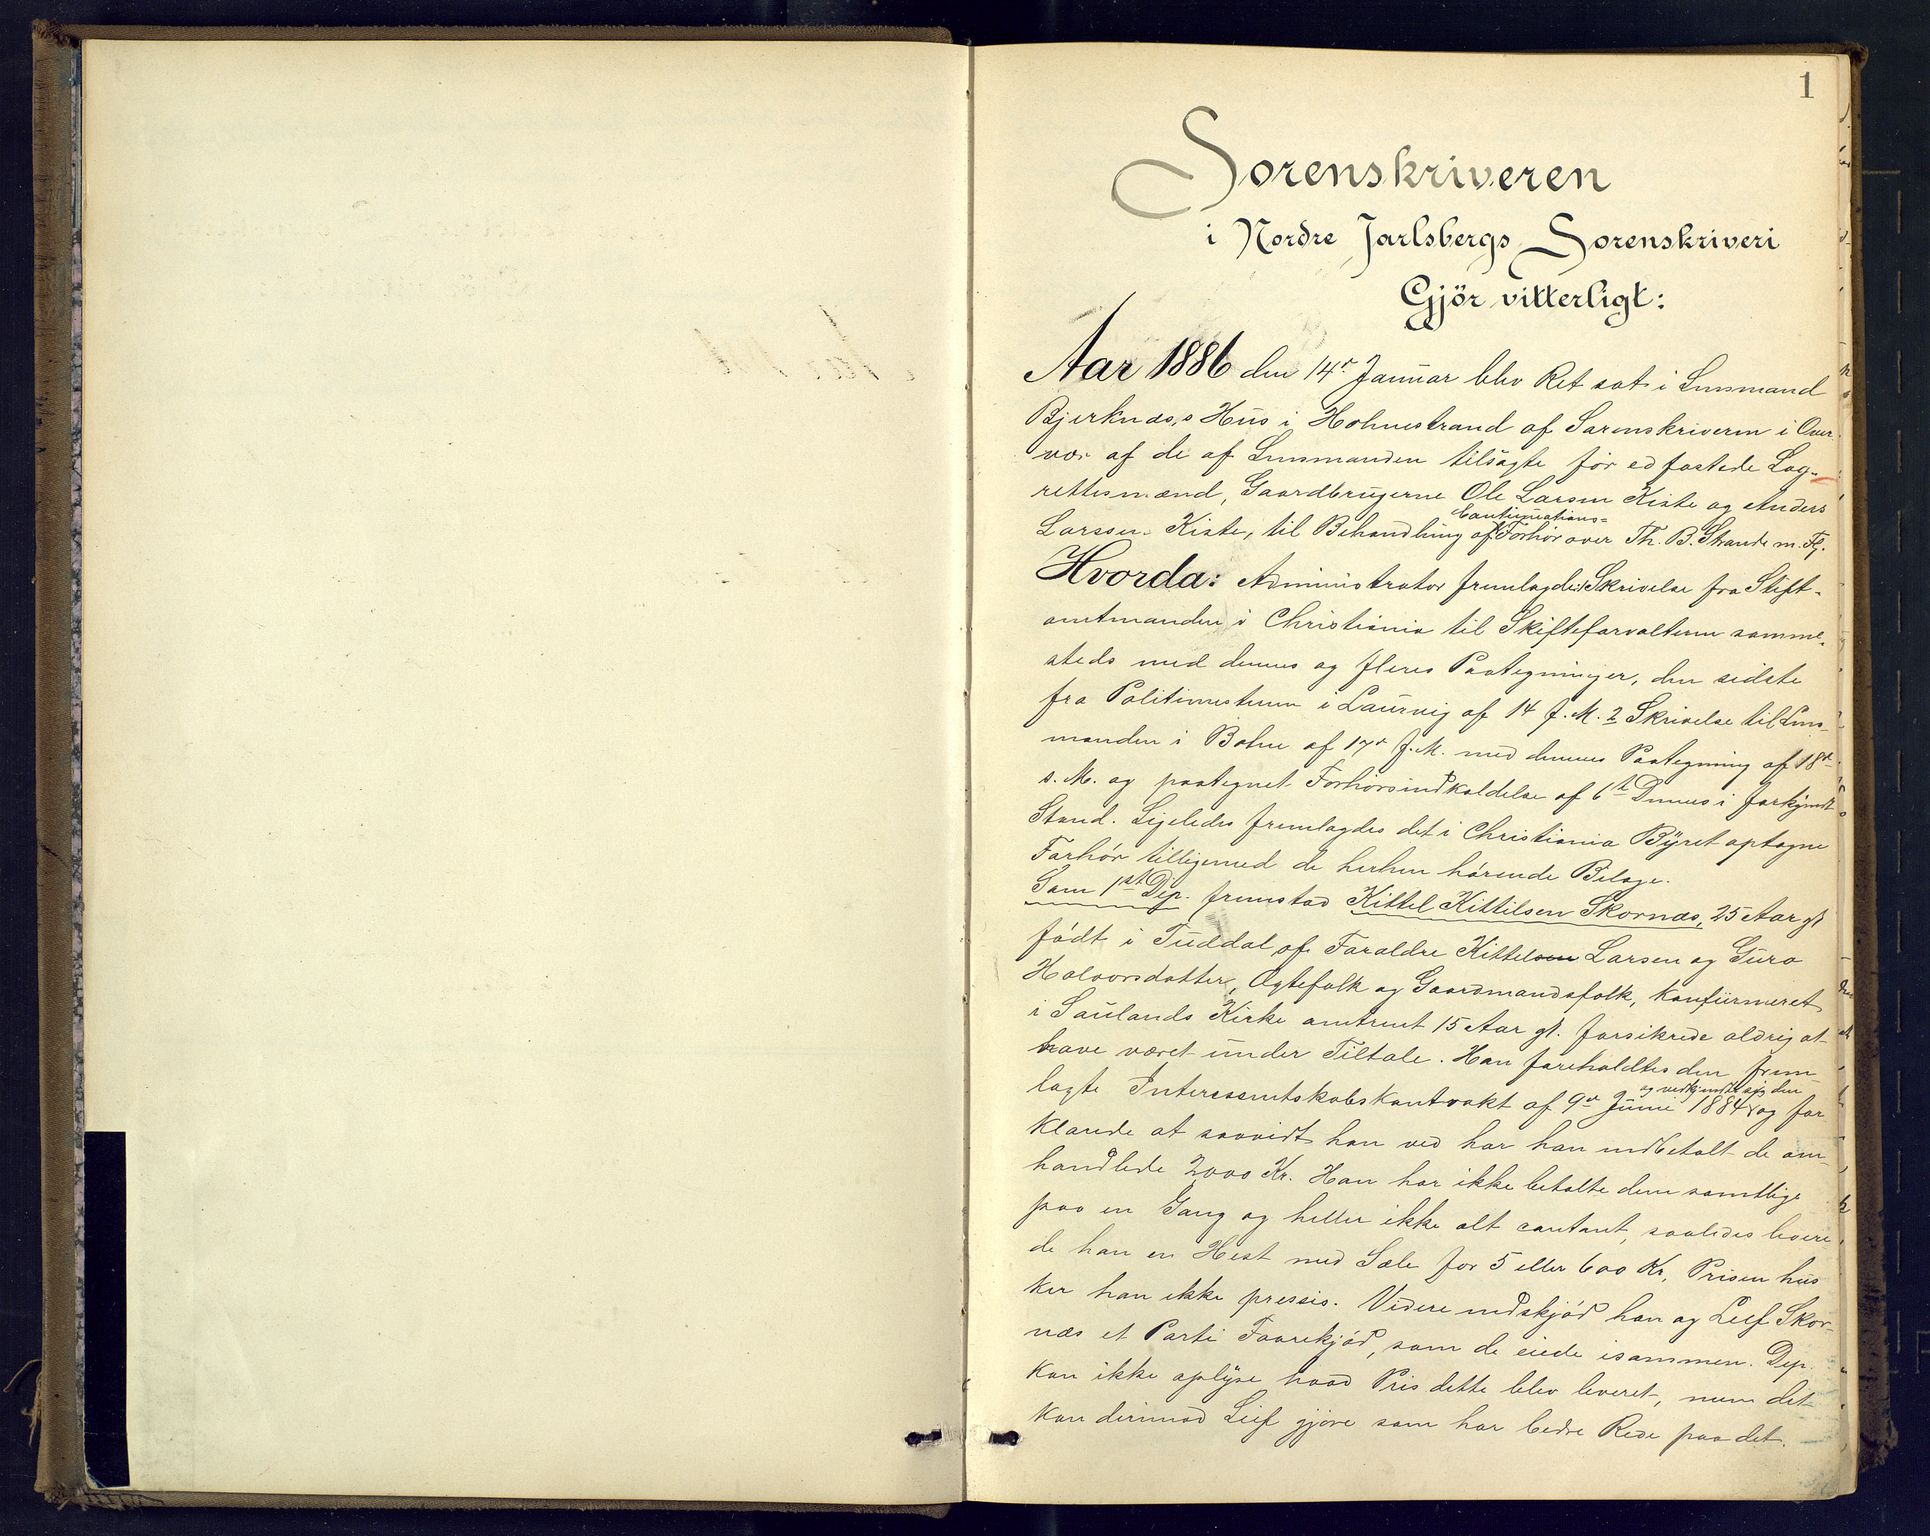 1
Sorenskriveren
i Nordre Jarlsbergs Sorenskriveri
Gjör vitterligt:
Aar 1886 den 14de Januar blev Ret sat i Lensmand
Bjerknæs,s Hus i Holmestrand af Sorenskriveren i Over
vær af de af Lensmanden tilsagte før edfæstede Lag-
rettesmænd, Gaardbrugerne Ole Larsen Kiste og Anders
Larssen Kiste, til Behandling af Continuations=Forhør over Th. B. Strande m. Fl.
Hvorda: Administrator fremlagde: 1 Skrivelse fra Stift-
amtmanden i Christiania til Skifteforvalteren samme-
steds med dennes og fleres Paategninger, den sidste
fra Politimesteren i Laurvig af 14 f. M. 2 Skrivelse til Lens
manden i Botne af 17de f. M. med dennes Paategning af 18de
s. M. og paategnet Forhørsindkaldelse af 6te Dennes i forkyndt
Stand. Ligeledes fremlagdes det i Christiania Byret optagne
Forhør tilligemed de herhen hørende Bilage.
Som 1ste Dep. fremstod Kittel Kittilsen Skornæs, 25 Aar gl
født i Tuddal af Foraldre Kittelsen Larsen og Guro
Halvorsdatter, Ægtefolk og Gaardmandsfolk, konfiirmeret
i Saulands Kirke omtrent 15 Aar gl. forsikrede aldrig at
have været under Tiltale. Han foreholdtes den frem
lagte Interessentskabskontrakt af 9de Juni 1884 og vedkjendte sig den og for
klarede at saavidt han ved har han indbetalt de om-
handlede 2000 Kr. Han har ikke betalte dem samtlige
paa en Gang og heller ikke alt contant, saaledes levere
de han en Hest med Sæle for 5 eller 600 Kr, Prisen hus
ker han ikke pressis. Videre indskjød han og Leif Skor-
næs et Parti Faarekjød, som de eiede isammen. Dep.
kan ikke oplyse hvad Pris dette blev leveret, men det
kan derimod Leif gjøre som har bedre Rede paa det.